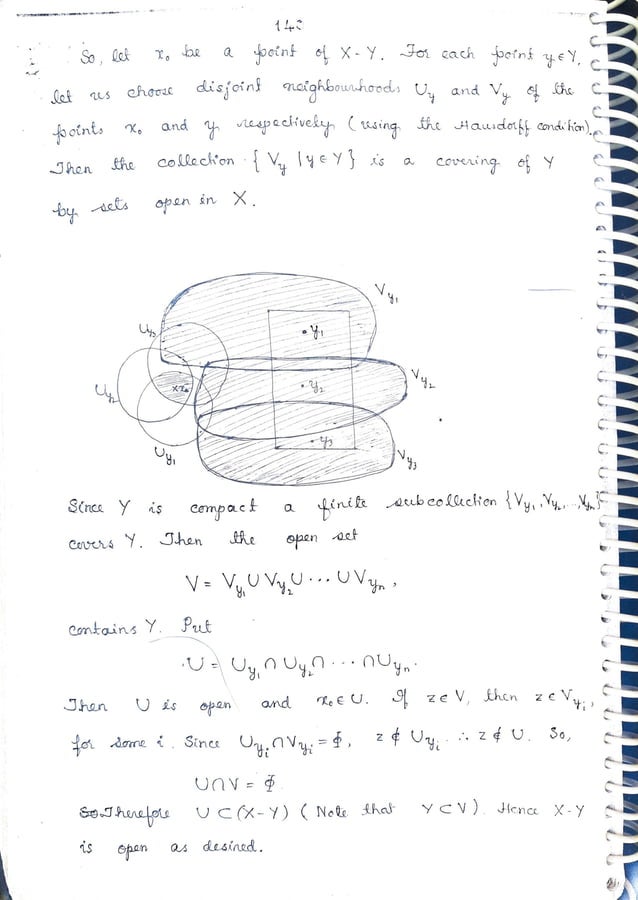 143
So, let x₀ be a point of X-Y. For each point y∈Y,
let us choose disjoint neighbourhoods U_y and V_y of the
points x₀ and y respectively (using the Hausdorff condition).
Then the collection {V_y | y∈Y} is a covering of Y
by sets open in X.
V_y₁
U_y₃
y₁
U_y₂
x₀
y₂
V_y₂
U_y₁
y₃
V_y₃
Since Y is compact a finite subcollection {V_y₁, V_y₂, ..., V_yₙ}
covers Y. Then the open set
V = V_y₁ ∪ V_y₂ ∪ ... ∪ V_yₙ,
contains Y. Put
U = U_y₁ ∩ U_y₂ ∩ ... ∩ U_yₙ.
Then U is open and x₀∈U. If z∈V, then z∈V_yᵢ,
for some i. Since U_yᵢ ∩ V_yᵢ = Φ, z∉U_yᵢ. ∴ z∉U. So,
U∩V = Φ
So Therefore U⊂(X-Y) (Note that Y⊂V). Hence X-Y
is open as desired.